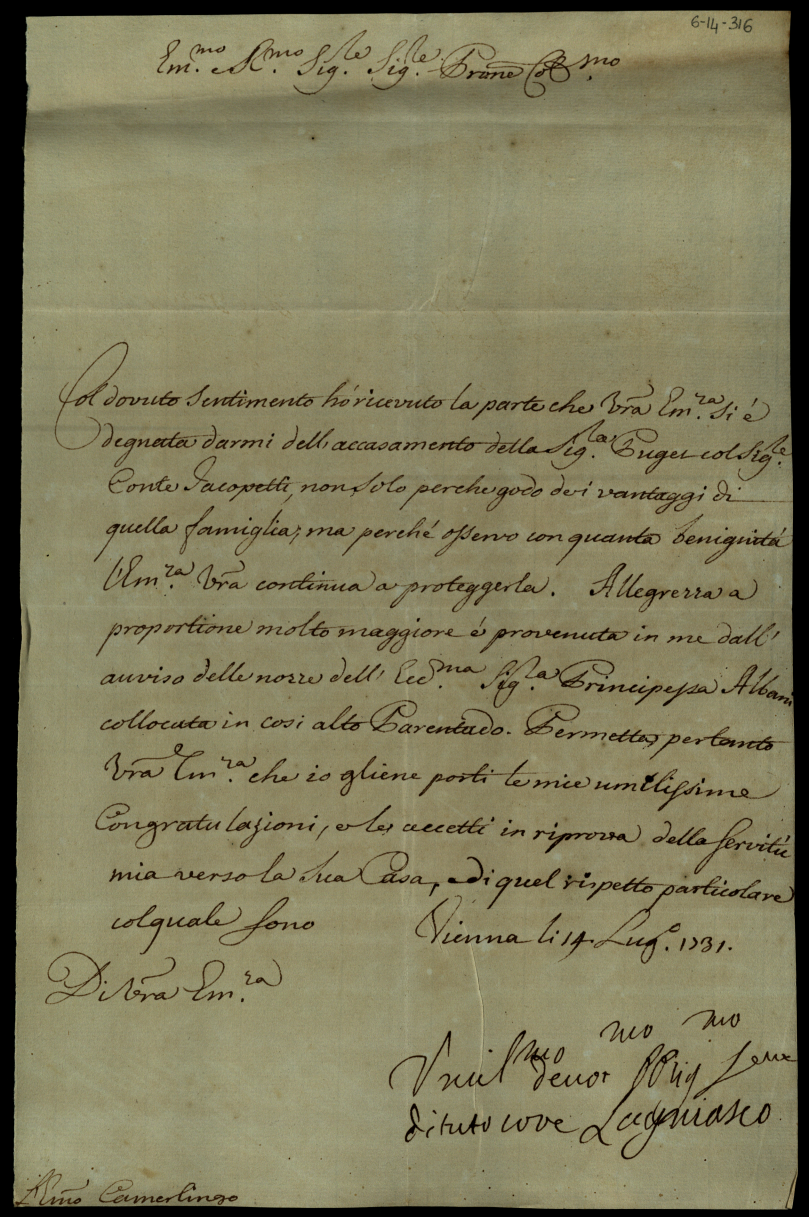 6-14-316
Em.mo e R.mo Sig.re Sig.re Prone Col.mo
Col dovuto sentimento hó ricevuto la parte che Vra Em.za si é
degnata darmi dell'accasamento della Sig.la Puget col Sig.re
Conte Jacopetti, non solo perche godo dei vantaggi di
quella famiglia; ma perché osservo con quanta benignitá
l'Em.za Vra continua a proteggerla. Allegrezza a
proportione molto maggiore é provenuta in me dall'
auviso delle nozze dell' Ecc.ma Sig.la Principessa Albani
collocata in cosi alto Parentado. Permetta pertanto
Vra Em.za che io gliene porti le mie umilissime
Congratulazioni, e le accetti in riprova della servitú
mia verso la sua Casa, e di quel rispetto particolare
col quale sono Vienna li 14 Lug.o 1731.
Di Vra Em.za
Umilmo devotmo Obligmo Serre
di tuto core Lagniasco
Camerlingo